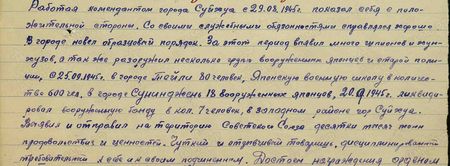 Работая комендантом города Субхуа с 29.08.1945г. показал себя с поло-
жительной стороны. Со своими служебными обязанностями справлялся хорошо
В городе навел образцовый порядок. За этот период выявил много шпионов и хун-
хузов, а так же разоружил несколько групп вооруженных японцев и старой поли-
ции, с 25.09.1945г. в городе Тойли 80 человек, Японскую военную школу в количе-
стве 600 чел. в городе 18 вооруженных японцев, 20.9.1945г. ликвиди-
ровал вооруженную банду в кол. 7 человек, в западном районе гор Субхуа.
Выявил и отправил на территорию Советского Союза десятки тысяч тонн
продовольствия и ценностей. Чуткий и отзывчивый товарищ, дисциплинированный
требовательный к себе и к своим подчиненным. Достоин награждения орденом